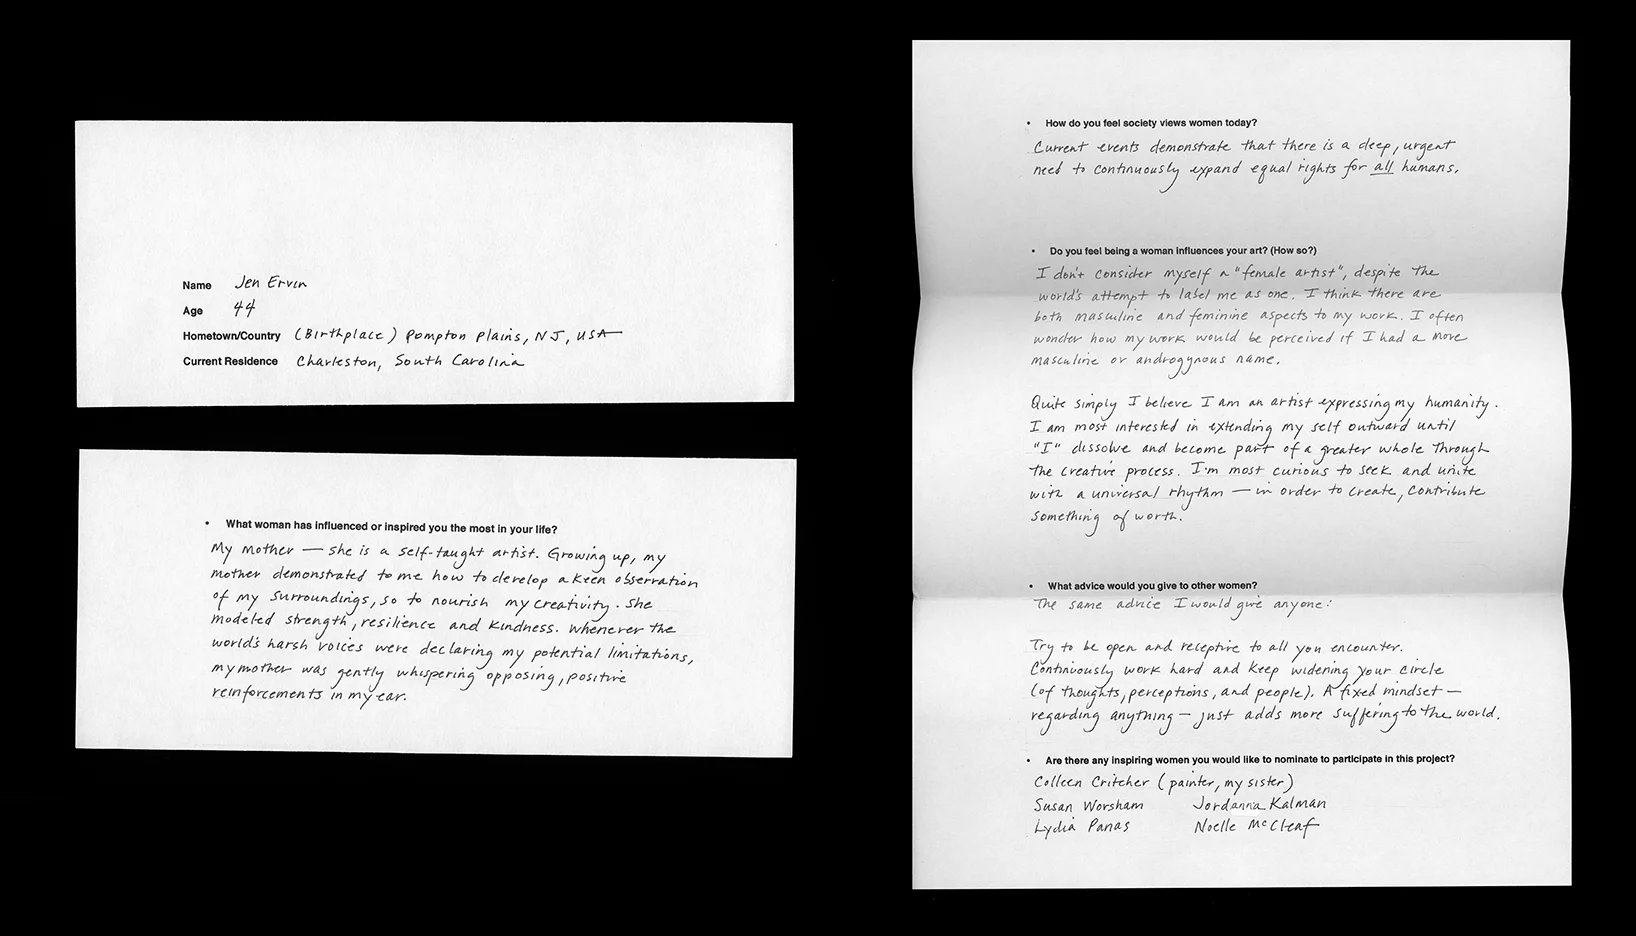 Name Jen Ervin
Age 44
Hometown/Country (Birthplace) Pompton Plains, NJ, USA
Current Residence Charleston, South Carolina
• What woman has influenced or inspired you the most in your life?
My mother — she is a self-taught artist. Growing up, my
mother demonstrated to me how to develop a keen observation
of my surroundings, so to nourish my creativity. She
modeled strength, resilience and kindness. Whenever the
world's harsh voices were declaring my potential limitations,
my mother was gently whispering opposing, positive
reinforcements in my ear.
• How do you feel society views women today?
Current events demonstrate that there is a deep, urgent
need to continuously expand equal rights for all humans.
• Do you feel being a woman influences your art? (How so?)
I don't consider myself a "female artist", despite the
world's attempt to label me as one. I think there are
both masculine and feminine aspects to my work. I often
wonder how my work would be perceived if I had a more
masculine or androgynous name.
Quite simply I believe I am an artist expressing my humanity.
I am most interested in extending my self outward until
"I" dissolve and become part of a greater whole through
the creative process. I'm most curious to seek and unite
with a universal rhythm — in order to create, contribute
something of worth.
• What advice would you give to other women?
The same advice I would give anyone:
Try to be open and receptive to all you encounter.
Continuously work hard and keep widening your circle
(of thoughts, perceptions, and people). A fixed mindset —
regarding anything — just adds more suffering to the world.
• Are there any inspiring women you would like to nominate to participate in this project?
Colleen Critcher (painter, my sister)
Susan Worsham Jordanna Kalman
Lydia Panas Noelle McCleaf